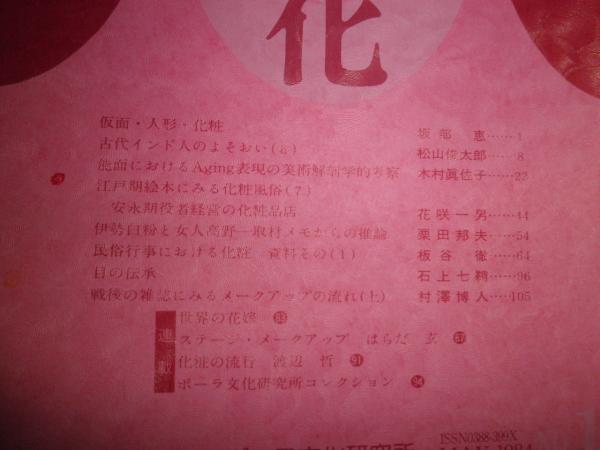 化
仮面・人形・化粧 坂部 恵……1
古代インド人のよそおい(8) 松山俊太郎……8
能面におけるAging表現の美術解剖学的考察 木村眞佐子……22
江戸期絵本にみる化粧風俗(7)
安永期役者経営の化粧品店 花咲一男……44
伊勢白粉と女人高野―取材メモからの推論 粟田邦夫……54
民俗行事における化粧 資料その(1) 板谷 徹……64
目の伝承 石上七鞘……96
戦後の雑誌にみるメークアップの流れ(上) 村澤博人……105
連載
世界の花嫁 83
ステージ・メークアップ はらだ 玄 87
化粧の流行 渡辺 哲 91
ポーラ文化研究所コレクション 94
ISSN0388-399X
文化研究所 MAY 1984 NO.1